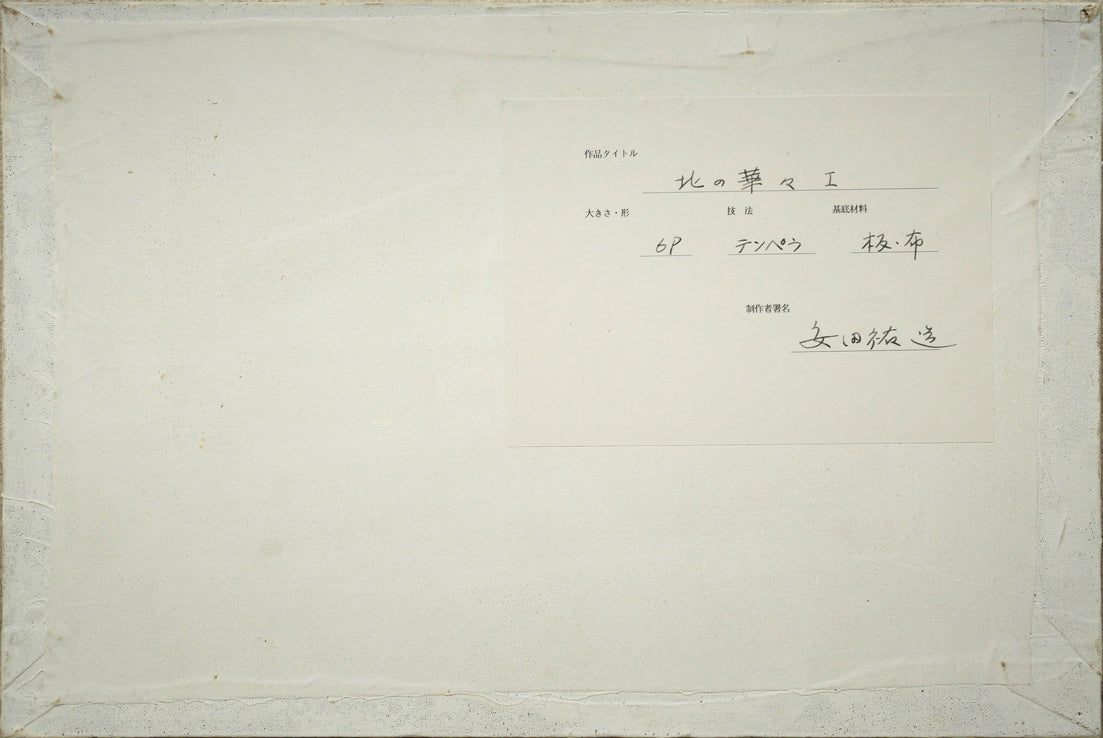 作品タイトル
北の華々 I
大きさ・形 技法 基底材料
6P テンペラ 板・布
制作者署名
安田祐造